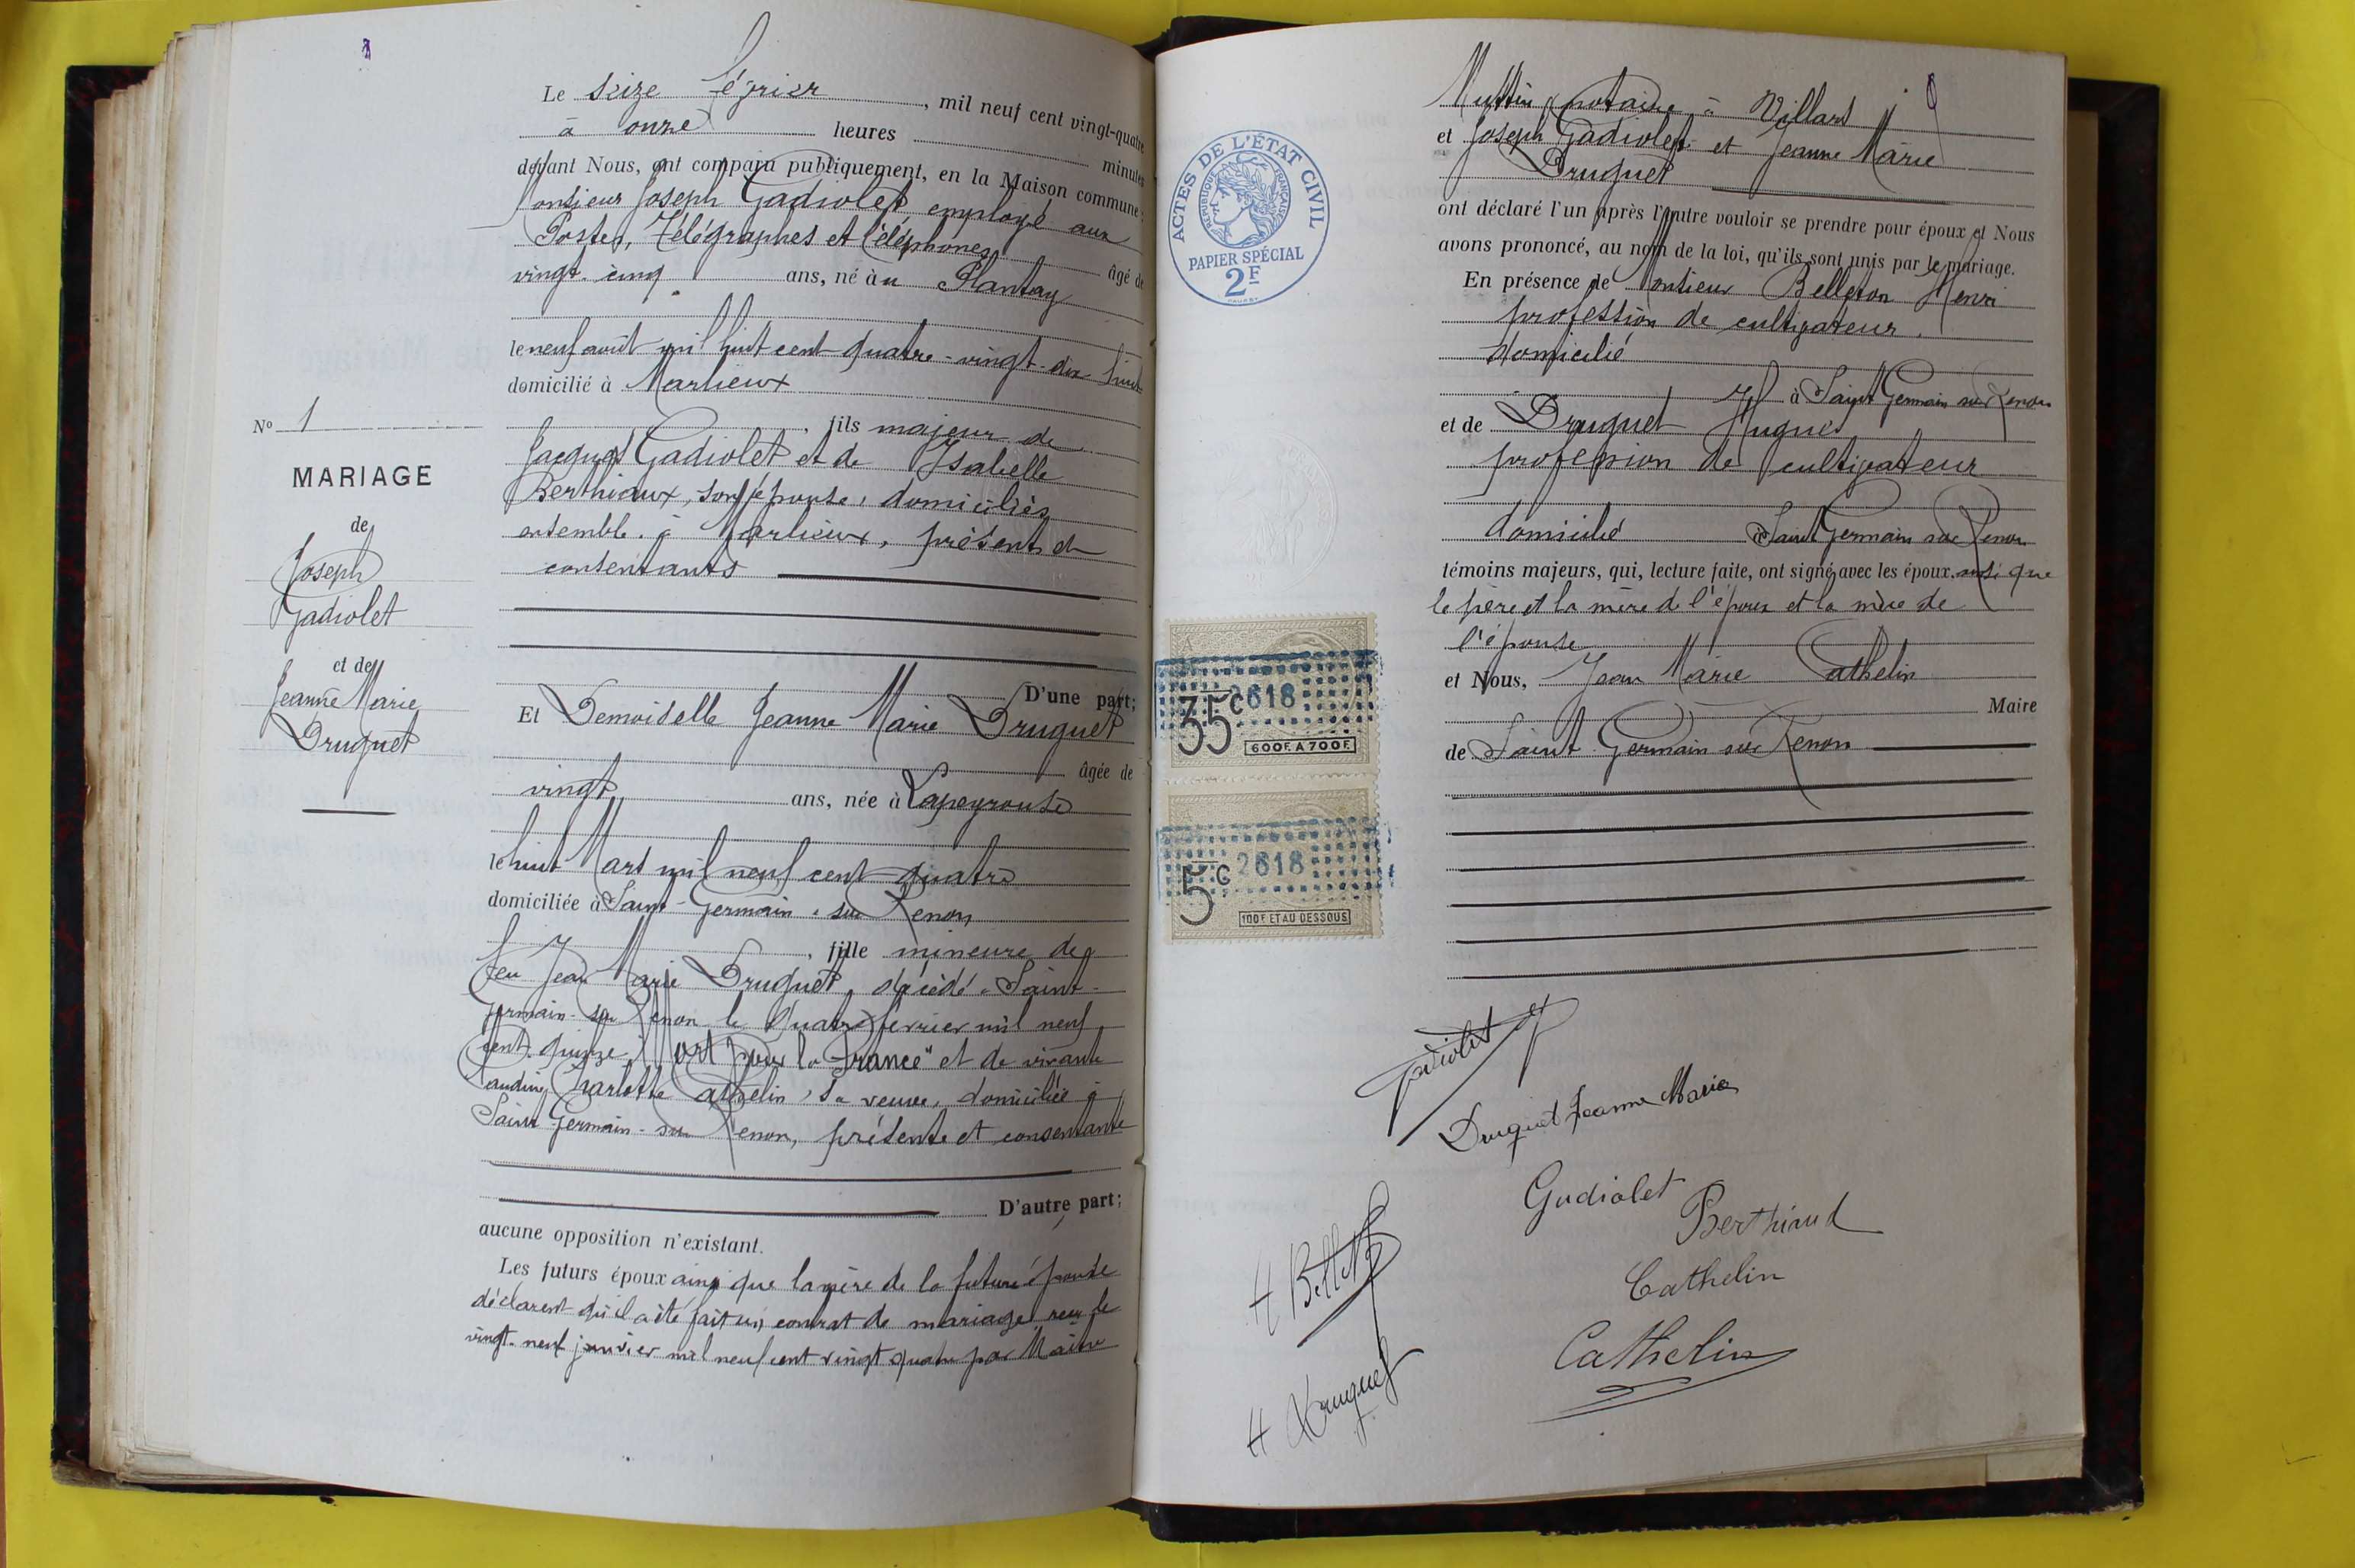 Le seize février, mil neuf cent vingt-quatre
à onze heures minutes
devant Nous, ont comparu publiquement, en la Maison commune:
Monsieur Joseph Gadiolet, employé aux
Postes, Télégraphes et Téléphones âgé de
vingt-cinq ans, né au Plantay
le neuf août mil huit cent quatre-vingt-dix huit
domicilié à Marlieux
, fils majeur de
Jacques Gadiolet et de Isabelle
Berthiaux, son épouse, domiciliés
ensemble à Marlieux, présents et
consentants
No 1
MARIAGE
de
Joseph
Gadiolet
et de
Jeanne Marie
Druguet
D'une part;
Et Demoiselle Jeanne Marie Druguet
âgée de
vingt ans, née à Lapeyrouse
le huit Mars mil neuf cent quatre
domiciliée à Saint-Germain-sur Renon
, fille mineure de
feu Jean Marie Druguet, décédé à Saint-
Germain-sur Renon le quatre février mil neuf
cent quinze, "Mort pour la France" et de vivante
Claudine Charlotte Cathelin, sa veuve, domiciliée à
Saint-Germain-sur Renon, présente et consentante
D'autre part;
aucune opposition n'existant.
Les futurs époux ainsi que la mère de la future épouse
déclarent qu'il a été fait un contrat de mariage reçu le
vingt-neuf janvier mil neuf cent vingt quatre par Maître
notaire à Villars
et Joseph Gadiolet et Jeanne Marie
Druguet
ont déclaré l'un après l'autre vouloir se prendre pour époux et Nous
avons prononcé, au nom de la loi, qu'ils sont unis par le mariage.
En présence de Monsieur Belleton Henri
profession de cultivateur
domicilié
à Saint Germain sur Renon
et de Druguet Hugues
profession de cultivateur
domicilié à Saint Germain sur Renon
témoins majeurs, qui, lecture faite, ont signé avec les époux, ainsi que
le père et la mère de l'époux et la mère de
l'épouse
et Nous, Jean Marie Cathelin
Maire
de Saint Germain sur Renon
ACTES DE L'ÉTAT CIVIL
RÉPUBLIQUE FRANÇAISE
PAPIER SPÉCIAL
2F
2618
35c
600F. A 700F.
2618
5c
100F ET AU DESSOUS
Gadiolet
Druguet Jeanne Marie
Gadiolet
Berthiaud
Cathelin
H Belleton
Cathelin
H Druguet